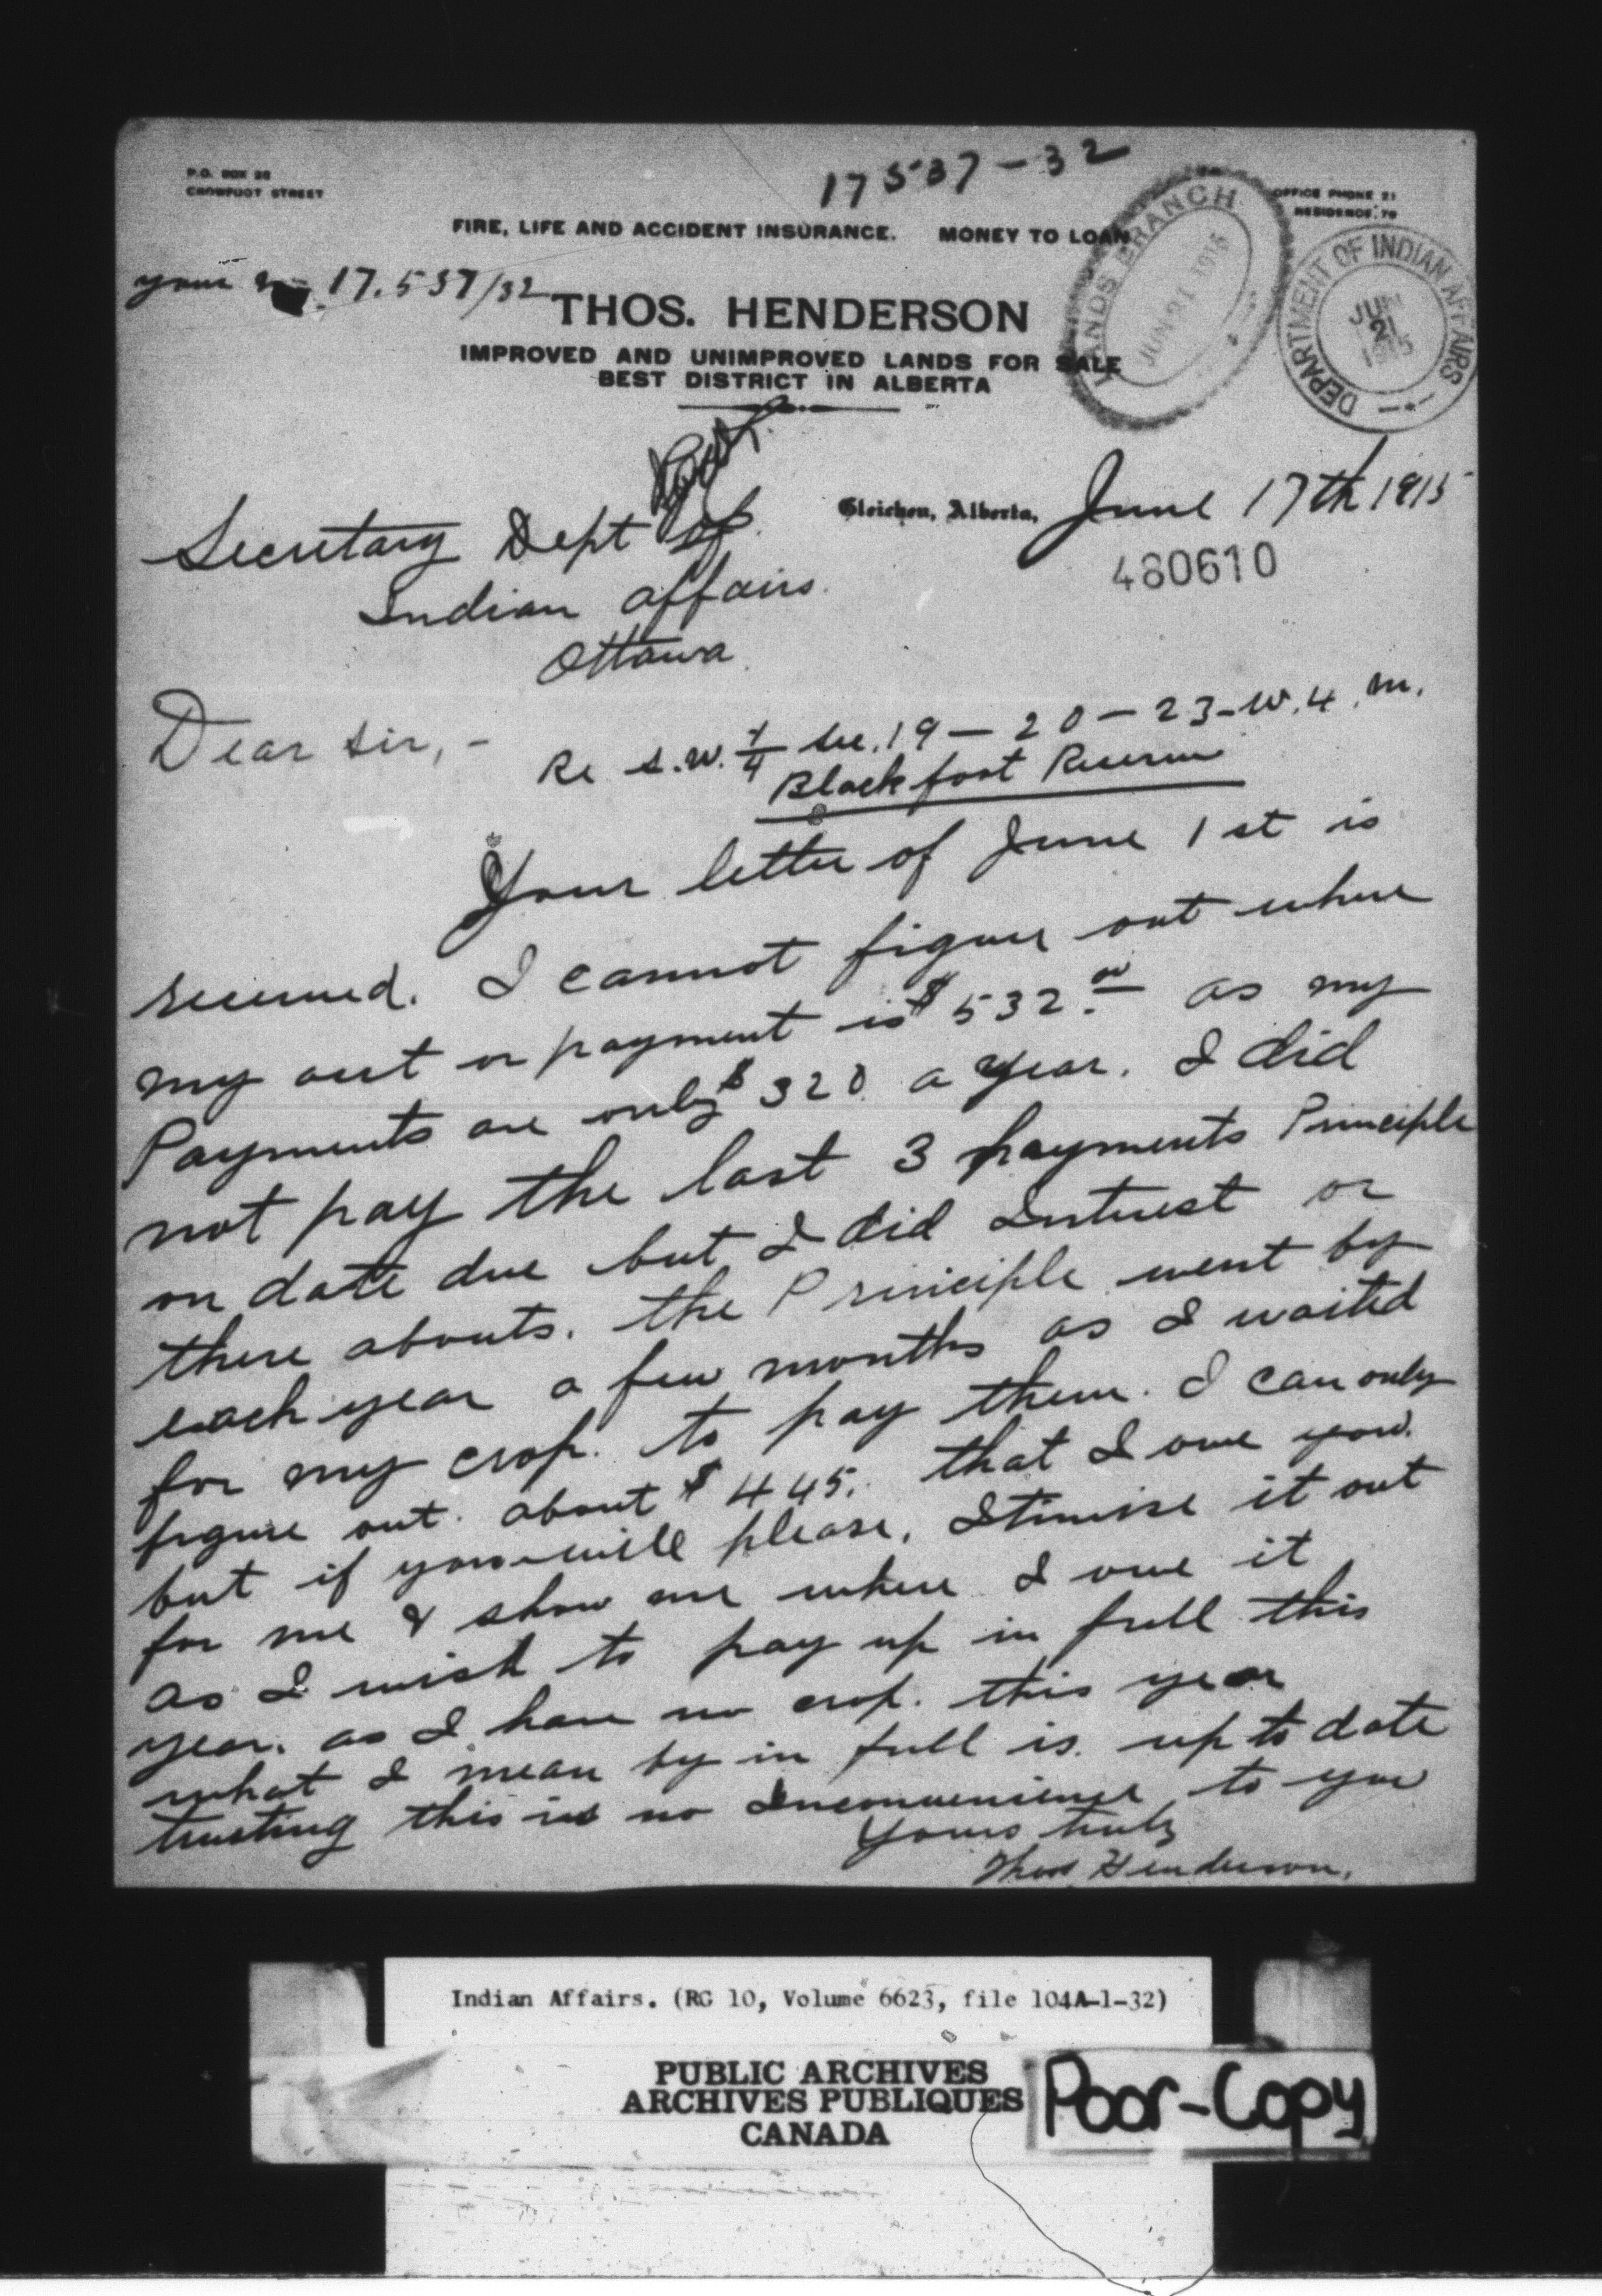 17537-32
P.O. BOX 20
CROWFOOT STREET
OFFICE PHONE 21
RESIDENCE, 70
FIRE, LIFE AND ACCIDENT INSURANCE. MONEY TO LOAN
LANDS BRANCH
JUN 21 1915
DEPARTMENT OF INDIAN AFFAIRS
JUN 21 1915
your 17.537/32
THOS. HENDERSON
IMPROVED AND UNIMPROVED LANDS FOR SALE
BEST DISTRICT IN ALBERTA
Gleichen, Alberta, June 17th 1915
480610
Secretary Dept of
Indian affairs.
Ottawa.
Dear Sir, -
Re S.W. 1/4 Sec. 19 - 20 - 23 - W. 4. M.
Blackfoot Reserve
Your letter of June 1st is
received. I cannot figure out where
my out or payment is $532.00 as my
Payments are only $320 a year. I did
not pay the last 3 payments Principle
on date due but I did Interest or
there abouts. the Principle went by
each year a few months as I waited
for my crop. to pay them. I can only
figure out. about $445. that I owe you.
but if you will please. Itimise it out
for me & show me where I owe it
as I wish to pay up in full this
year. as I have no crop. this year
what I mean by in full is. up to date
trusting this is no Inconvenience to you
Yours truly
Thos Henderson.
Indian Affairs. (RG 10, Volume 6623, file 104A-1-32)
PUBLIC ARCHIVES
ARCHIVES PUBLIQUES
CANADA
Poor-Copy